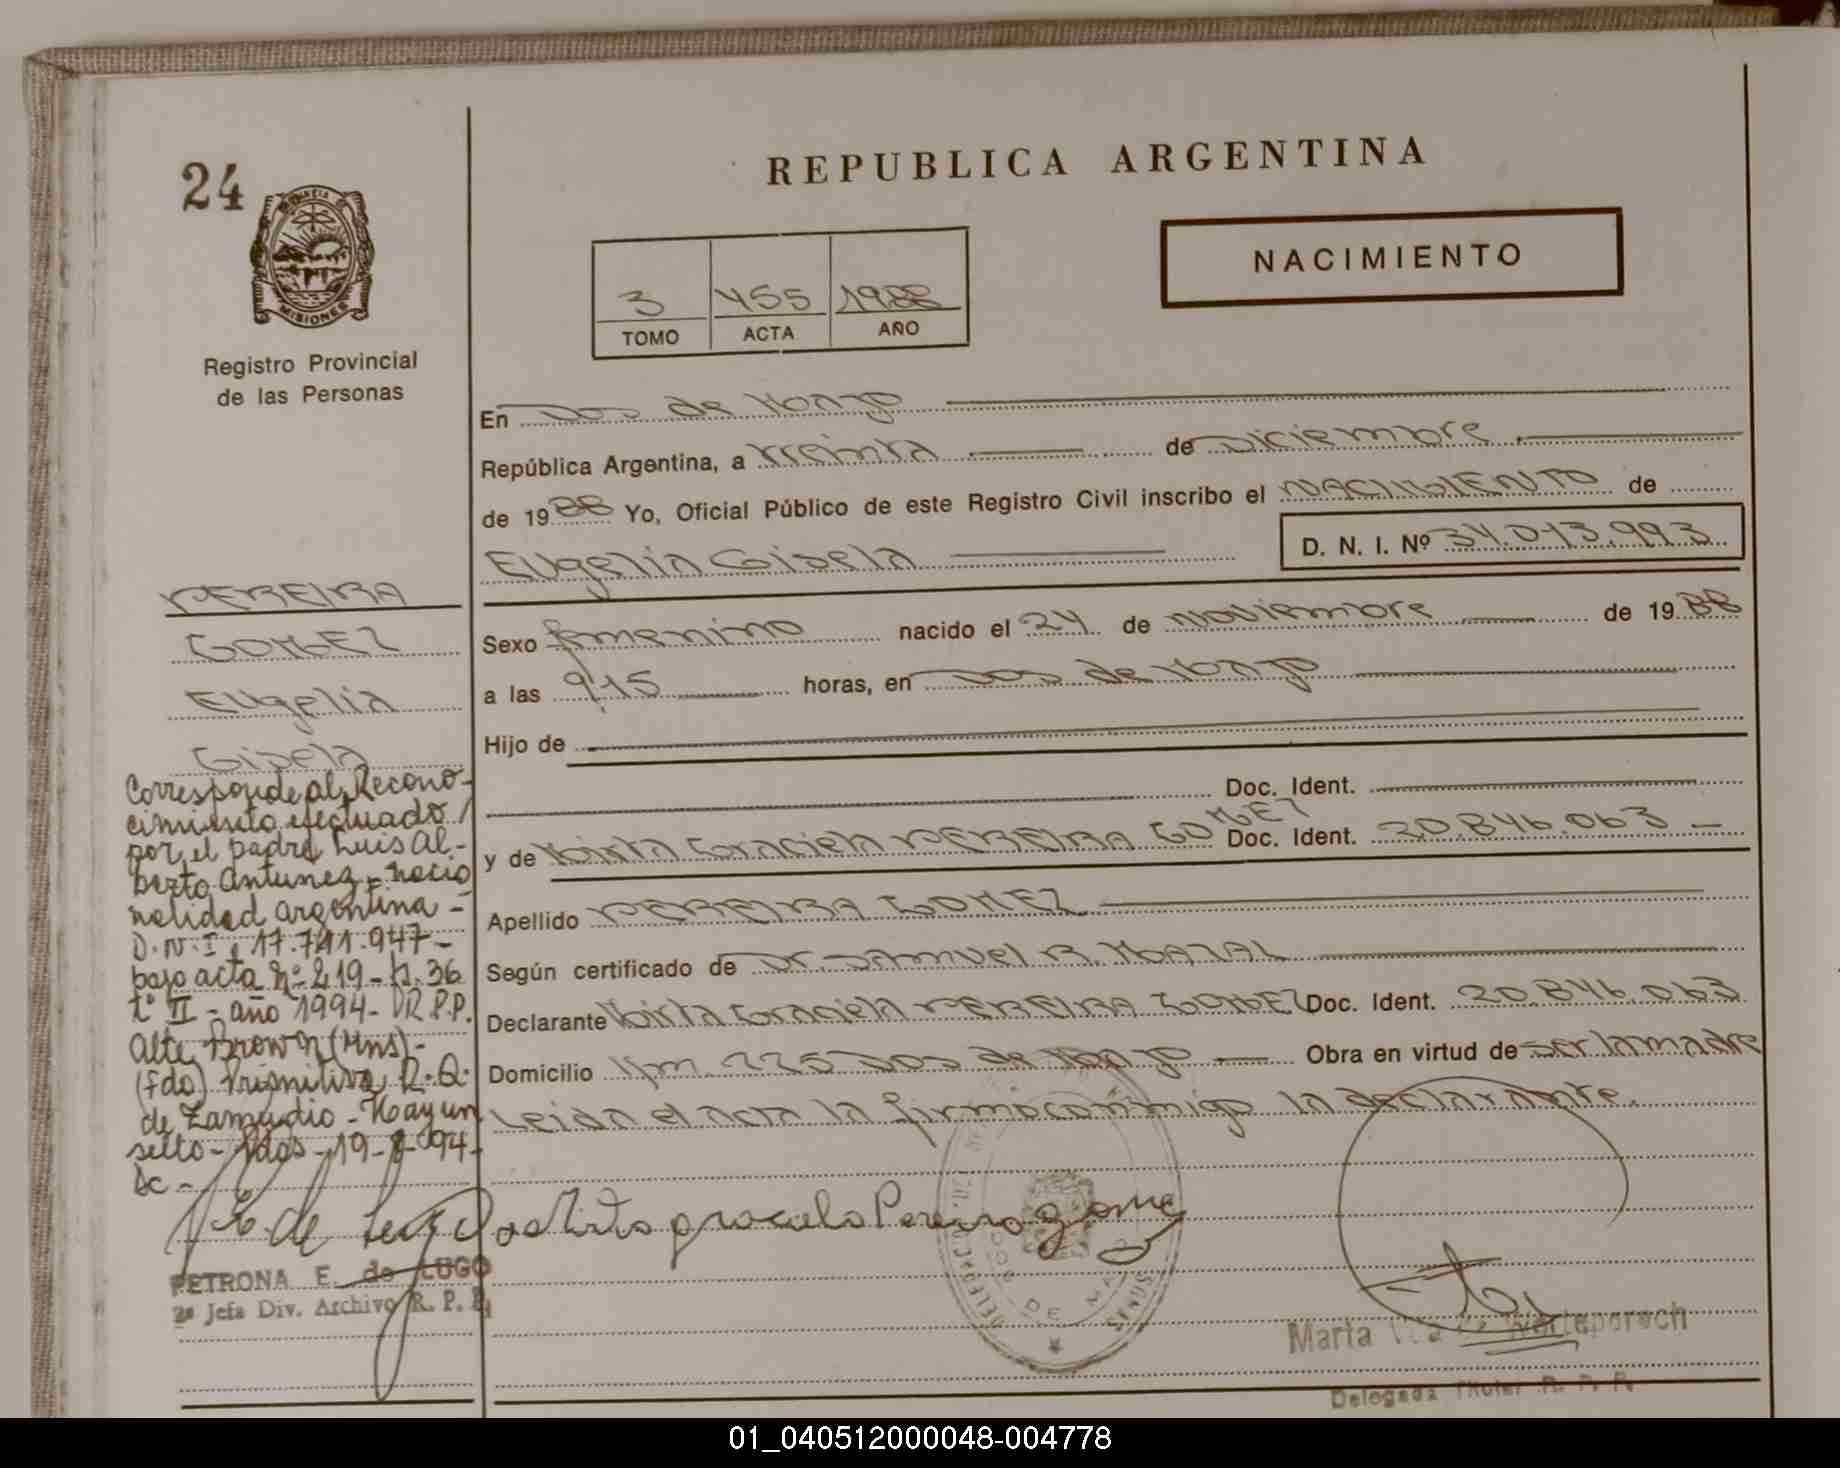 REPUBLICA ARGENTINA
24
MISIONES
Registro Provincial
de las Personas
NACIMIENTO
3 455 1988
TOMO ACTA AÑO
En Dos de Mayo
República Argentina, a treinta de Diciembre
de 1988 Yo, Oficial Público de este Registro Civil inscribo el NACIMIENTO de
Eugelia Gisela D. N. I. Nº 34.013.993
Sexo femenino nacido el 24 de noviembre de 1988
a las 9,15 horas, en Dos de Mayo
Hijo de
Doc. Ident.
y de Mirta Graciela PEREIRA GOMEZ Doc. Ident. 20.846.063
Apellido PEREIRA GOMEZ
Según certificado de Dr. Samuel R. MAZAL
Declarante Mirta Graciela PEREIRA GOMEZ Doc. Ident. 20.846.063
Domicilio Km. 225 Dos de Mayo Obra en virtud de ser la madre
Leida el acta la firmó conmigo la declarante.
PEREIRA
GOMEZ
Eugelia
Gisela
Corresponde al Recono-
cimiento efectuado
por el padre Luis Al-
berto Antunez - nacio
nalidad argentina -
D.N.I. 17.741.947-
bajo acta Nº 219 - f. 36
tº II - año 1994 - R.P.P.
Alte Brown (Mns) -
(fdo) Primitiva R. Q.
de Zamudio - Hay un
sello - Pdas - 19-8-94-
PETRONA E. de LUGO
2ª Jefa Div. Archivo R. P. P.
Mirta graciela Pereira gome
DOS DE MAYO
MISIONES
Marta
Delegada Titular R. P. P.
01_040512000048-004778